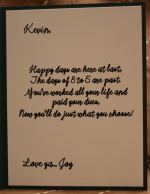 Kevin,
Happy days are here at last,
The days of 8 to 5 are past.
You've worked all your life and
paid your dues,
Now you'll do just what you choose!
Love ya... Joy